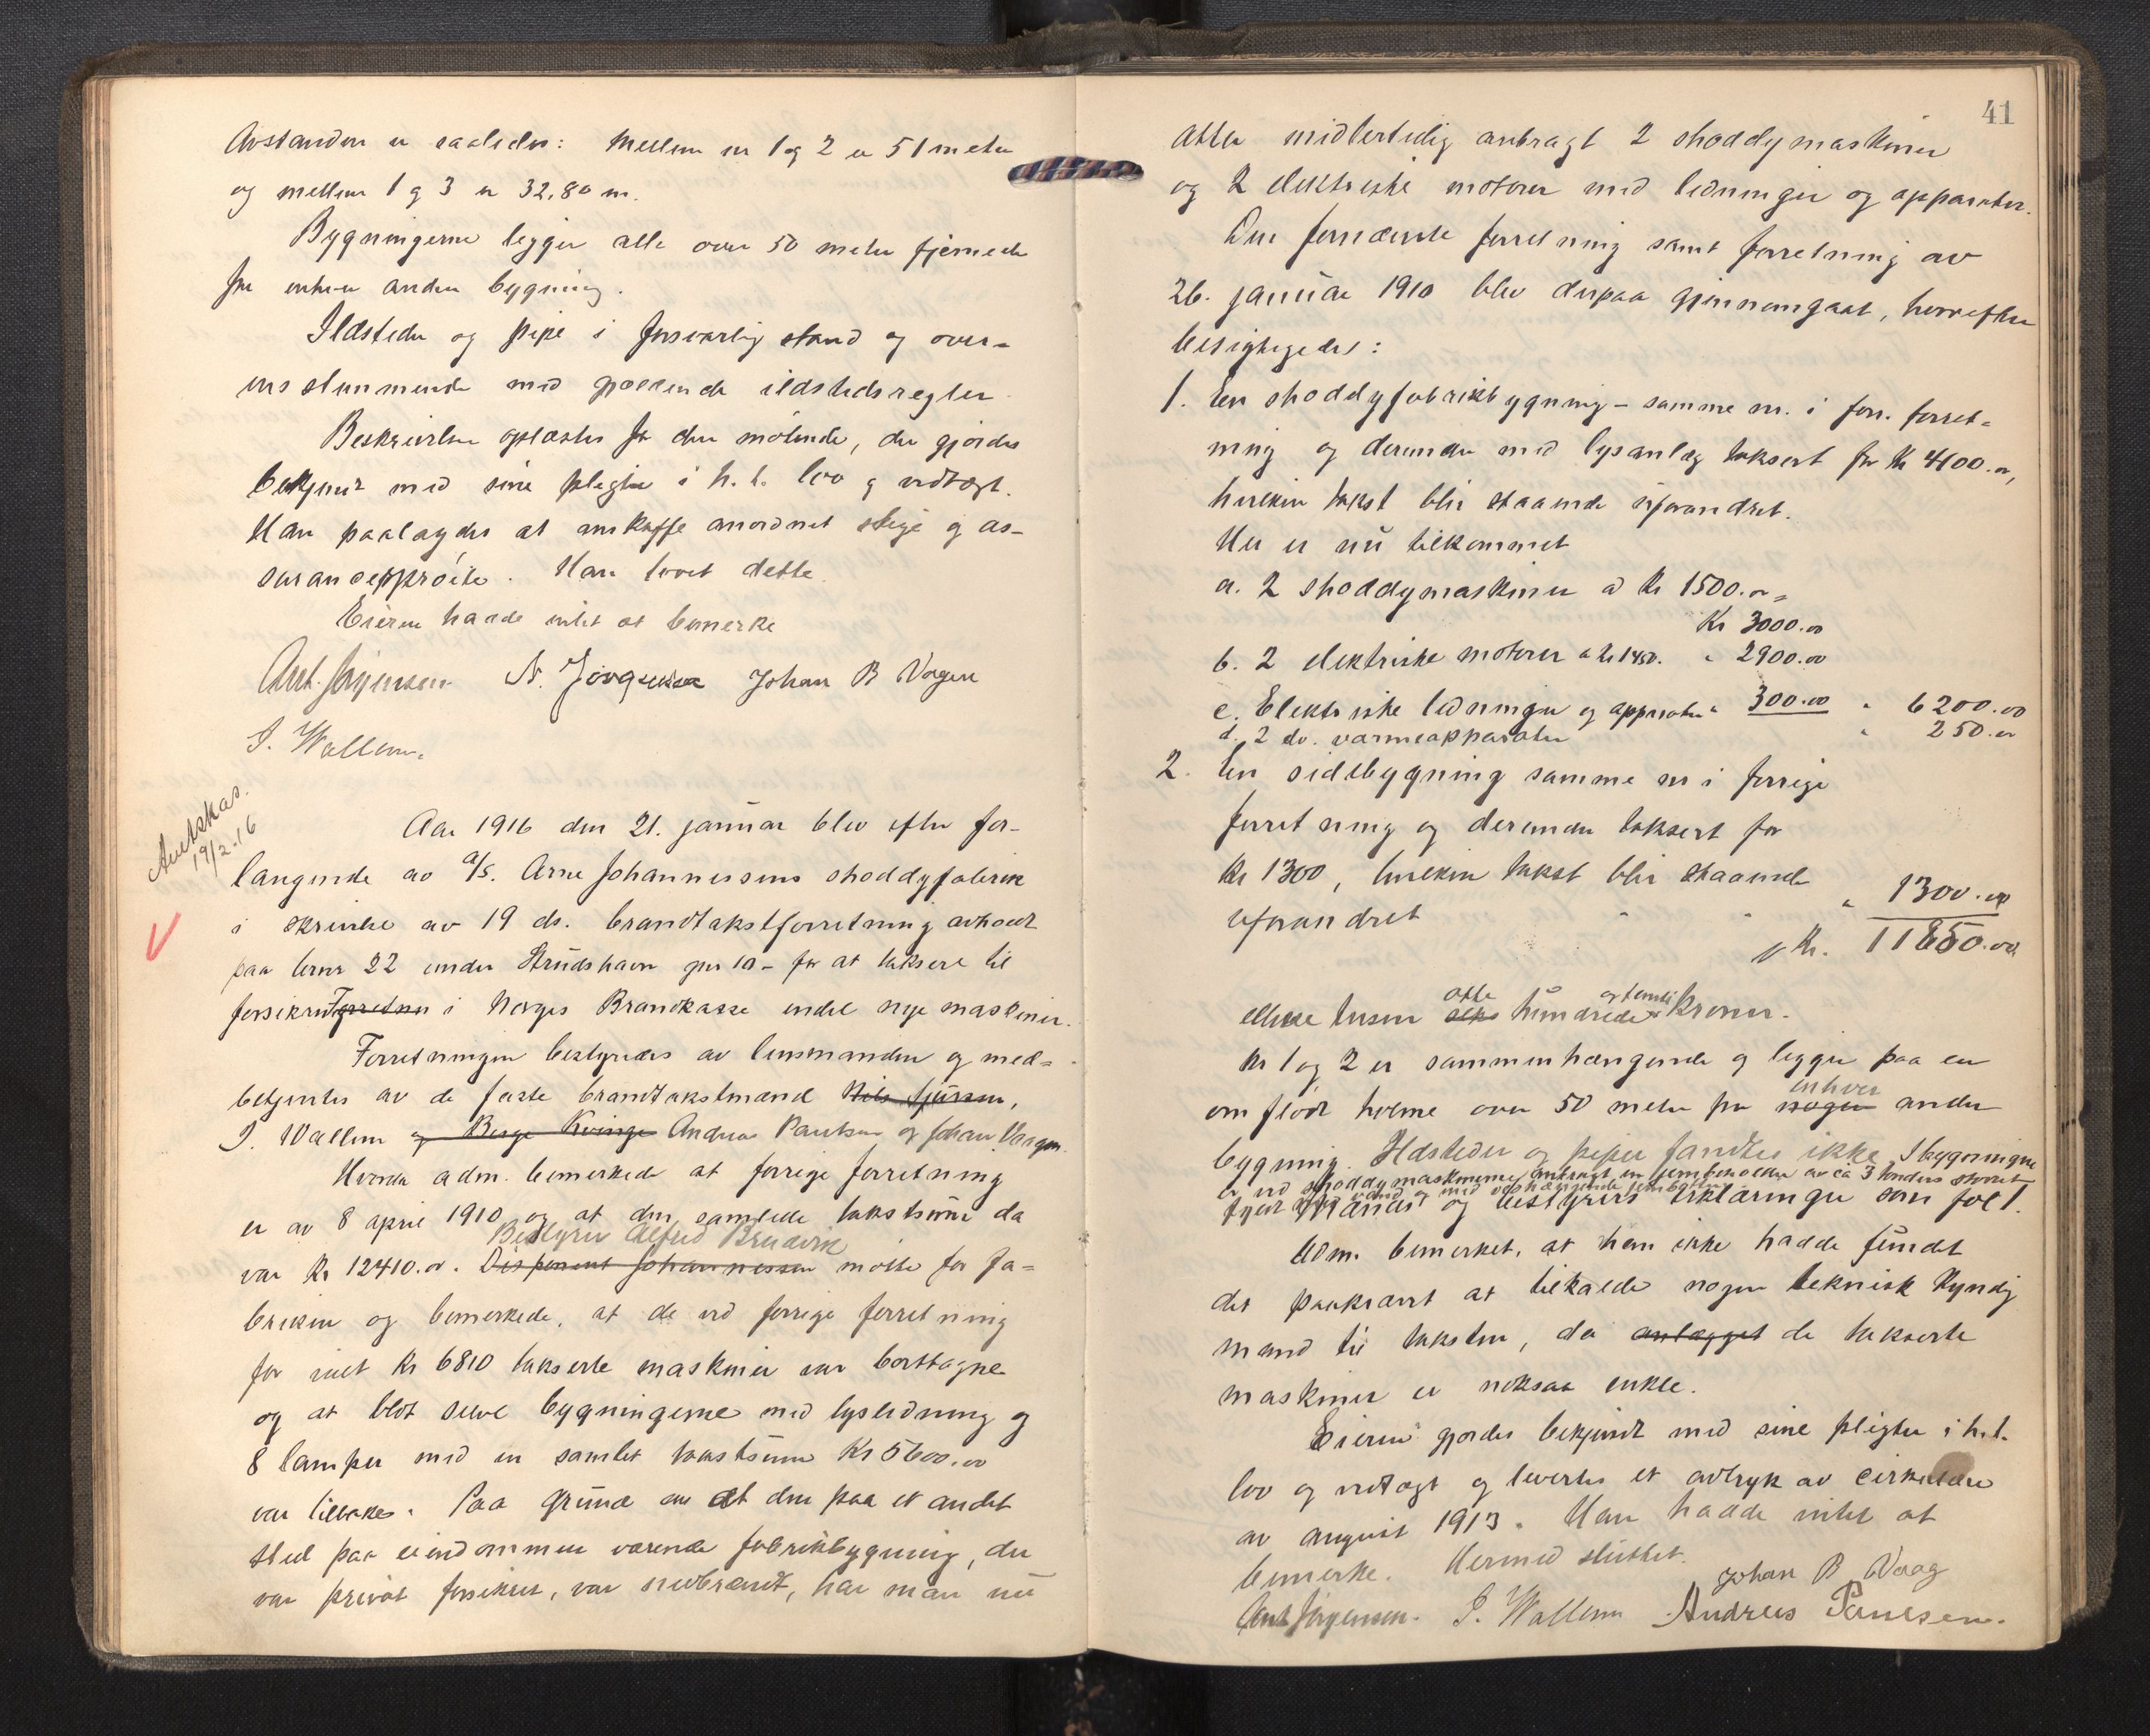 Avstanden er saaledes: Mellem nr 1 og 2 er 51 meter
og mellem 1 og 3 er 32,80 m.
Bygningerne legger alle over 50 meter fjernede
fra enhver anden bygning.
Ildsteder og pipe i forsvarlig stand og over-
ensstemmende med gjældende ildstedsregler.
Beskrivelsen oplæstes for den møtende, der gjordes
bekjendt med sine plegter i h. t. lov og vedtægt.
Han paalagdes at anskaffe anordnet stige og as-
suransesprøite. Han lovet dette.
Eieren hadde intet at bemerke
Ant. Jørgensen N. Jørgensen Johan B Vogen
I. Wallem.
Avetskas.
19/2-16
Aar 1916 den 21. januar blev efter for-
langende av A/S. Arne Johannessens shoddyfabrik
i skrivelse av 19 ds. brandtakstforretning avholdt
paa brnr 22 under Strudshavn gnr 10 - for at taksere til
forsikring Forretnin i Norges Brandkasse endel nye maskiner.
Forretningen bestyredes av lensmanden og med-
betjentes av de faste brandtakstmænd Nils Sjursen,
I. Wallem og Berge Kvinge Andreas Paulsen og Johan Vaagen.
Herunder adm. bemerkede at forrige forretning
er av 8 april 1910 og at den samlede takstsum da
Bestyrer Alfred Brudvik
var Kr 12410.00. Disponent Johannessen møtte for fa-
briken og bemerkede, at de ved forrige forretning
for ialt Kr 6810 takserte maskiner var borttagne
og at blot selve bygningerne med lysledning og
8 lamper med en samlet takstsum Kr 5600.00
var tilbakes. Paa grund av at den paa et andet
sted paa eiendommen værende fabrikbygning, der
var privat forsikret, var nedbrændt, har man nu
41
atter midlertidig anbragt 2 shoddymaskiner
og 2 elektriske motorer med ledninger og apparater.
Den fornævnte forretning samt forretning av
26. januar 1910 blev derpaa gjennemgaat, hvorefter
besigtigedes:
1. En shoddyfabrikbygning - samme nr. i forr. forret-
ning og derunder med lysanlæg taksert for Kr 4100.00,
hvilken takst blir staaende uforandret.
Her er nu tilkommet
a. 2 shoddymaskiner a Kr 1500.00 =
Kr 3000.00
b. 2 elektriske motorer a Kr 1450. " 2900.00
c. Elektriske ledninger og apparater " 300.00 " 6200.00
d. 2 do. varmeapparater " 250.00
2. En sidebygning samme nr i forrige
forretning og derunder taksert for
Kr 1300, hvilken takst blir staaende
uforandret " 1300.00
Kr. 11850.00
otte og femti
elleve tusen seks hundrede kroner.
Nr 1 og 2 er sammenhængende og legger paa en
enhver
omflødt holme over 50 meter fra nogen anden
bygning. Ildsteder og piper fandtes ikke. I bygningen
er ved shoddymaskinerne anbragt en jernbeholder av ca 3 tønders størrelse
fyldt med vand og med
Mands og bestyrers erklæringer som fol 1.
Adm. bemerket, at han ikke hadde fundet
det paakrævet at tilkalde nogen teknisk kyndig
mand til taksten, da anlægget de takserte
maskiner er noksaa enkle.
Eieren gjordes bekjendt med sine pligter i h.t.
lov og vedtægt og levertes et avtryk av cirkulære
av august 1913. Han hadde intet at
bemerke. Hermed sluttet.
Johan B Vaag
Ant Jørgensen. I. Wallem Andreas Paulsen.